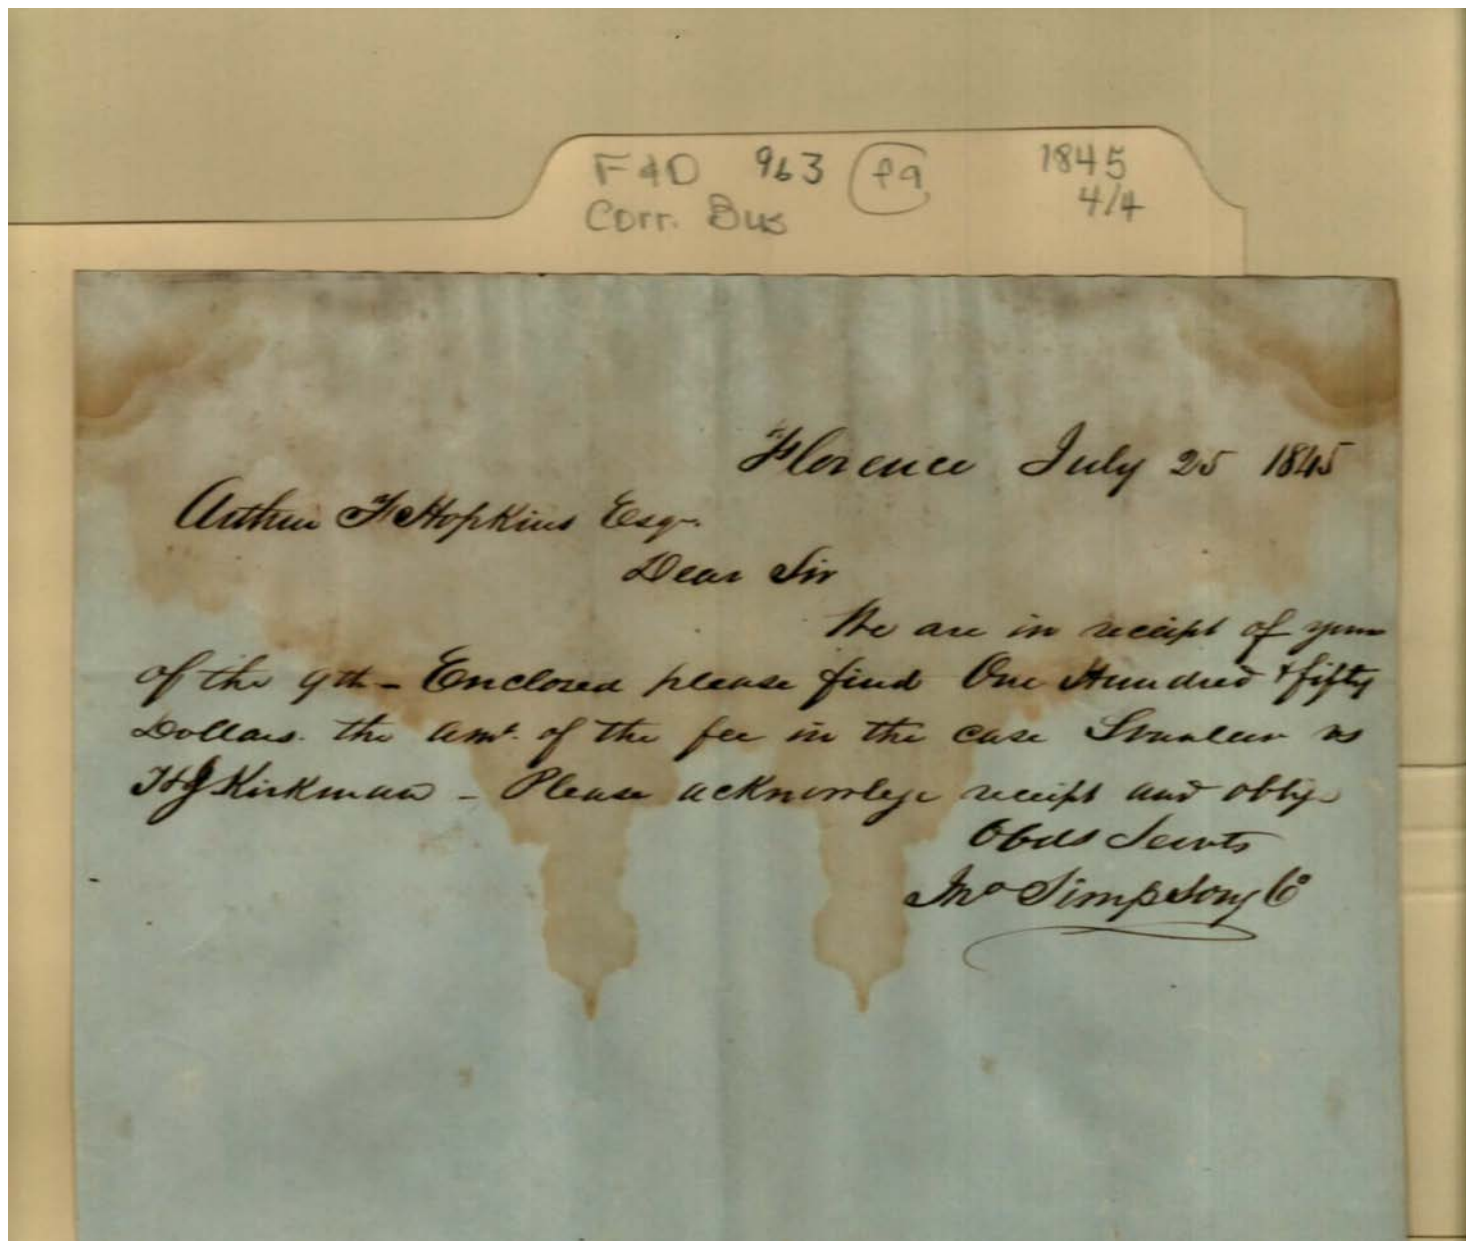 F & D 963 f9 1845
Corr. Bus 4/4
Florence July 25 1845
Arthur F Hopkins Esqr.
Dear Sir
We are in receipt of yours
of the 9th - Enclosed please find One Hundred & fifty
Dollars. the Amt. of the fee in the case vs
Kirkman - Please acknowlege receipt and oblige
Obdt Servts
Jno Simpson & Co